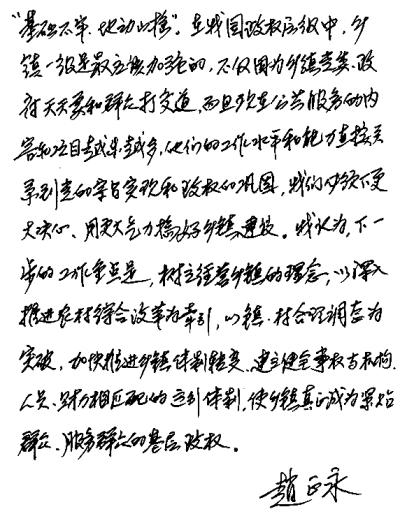 “基础不牢、地动山摇”。在我国政权层级中，乡
镇一级是最应该加强的，不仅因为乡镇党委、政
府天天要和群众打交道，而且现在公共服务的内
容和项目越来越多，他们的工作水平和能力直接关
系到党的宗旨实现和政权的巩固，我们必须下更
大决心、用更大气力搞好乡镇建设。我认为，下一
步的工作重点是，树立经营乡镇的理念，以深入
推进农村综合改革为牵引，以镇、村合理调整为
突破，加快推进乡镇体制转变，建立健全事权与机构、
人员、财力相匹配的运行体制，使乡镇真正成为累贴
群众、服务群众的基层政权。
赵正永